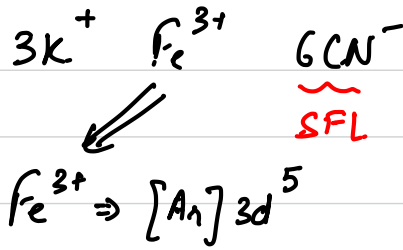 3K⁺ Fe³⁺ 6CN⁻
SFL
Fe³⁺ ⇒ [Ar] 3d⁵